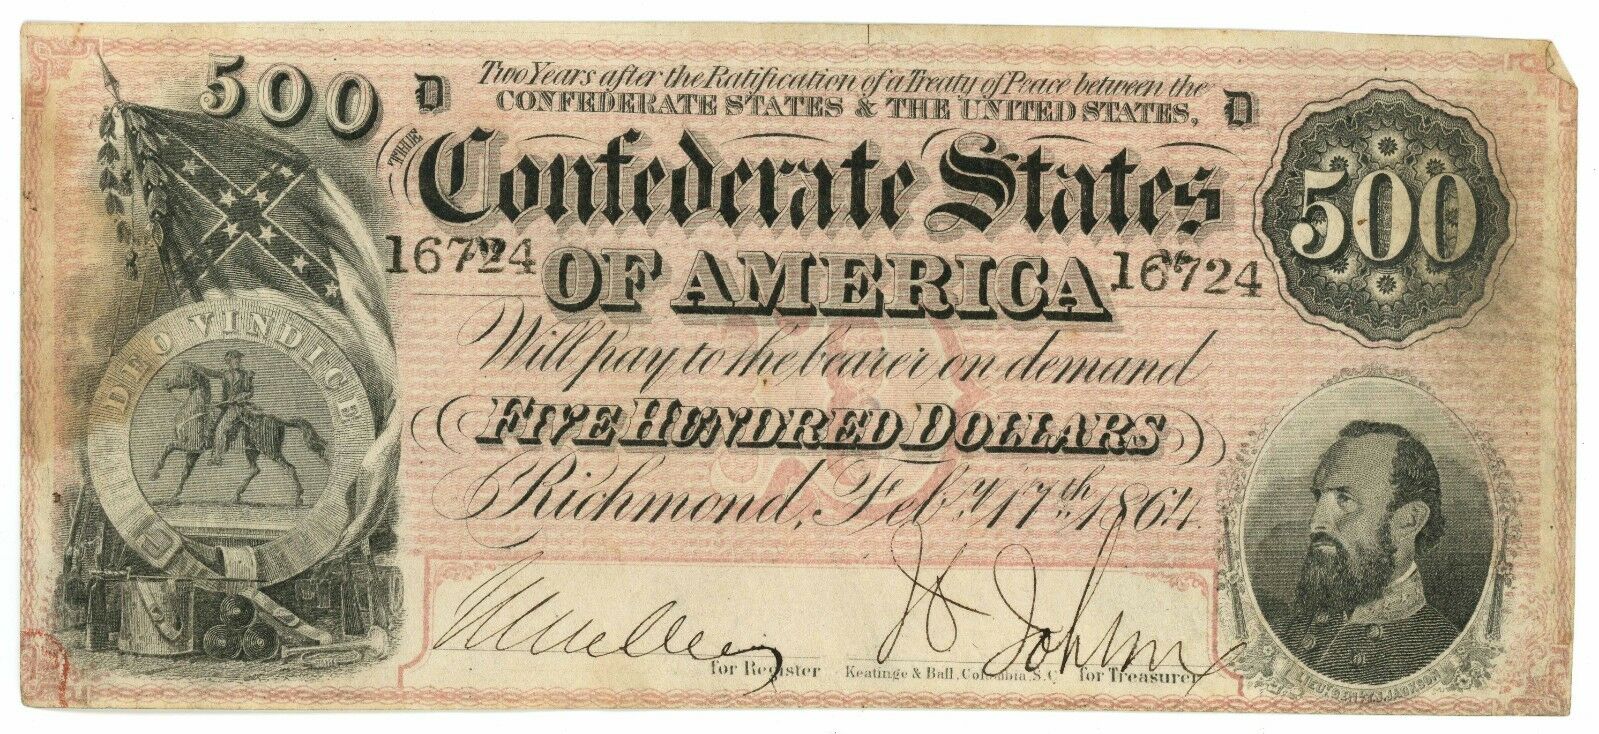 500
D Two Years after the Ratification of a Treaty of Peace between the D
CONFEDERATE STATES & THE UNITED STATES,
THE Confederate States
500
16724 OF AMERICA 16724
DEO VINDICE
Will pay to the bearer on demand
FIVE HUNDRED DOLLARS
Richmond, Feby. 17th. 1864.
H Johnson
for Register Keatinge & Ball, Columbia, S.C. for Treasurer
LIEUT. GEN. T.J. JACKSON